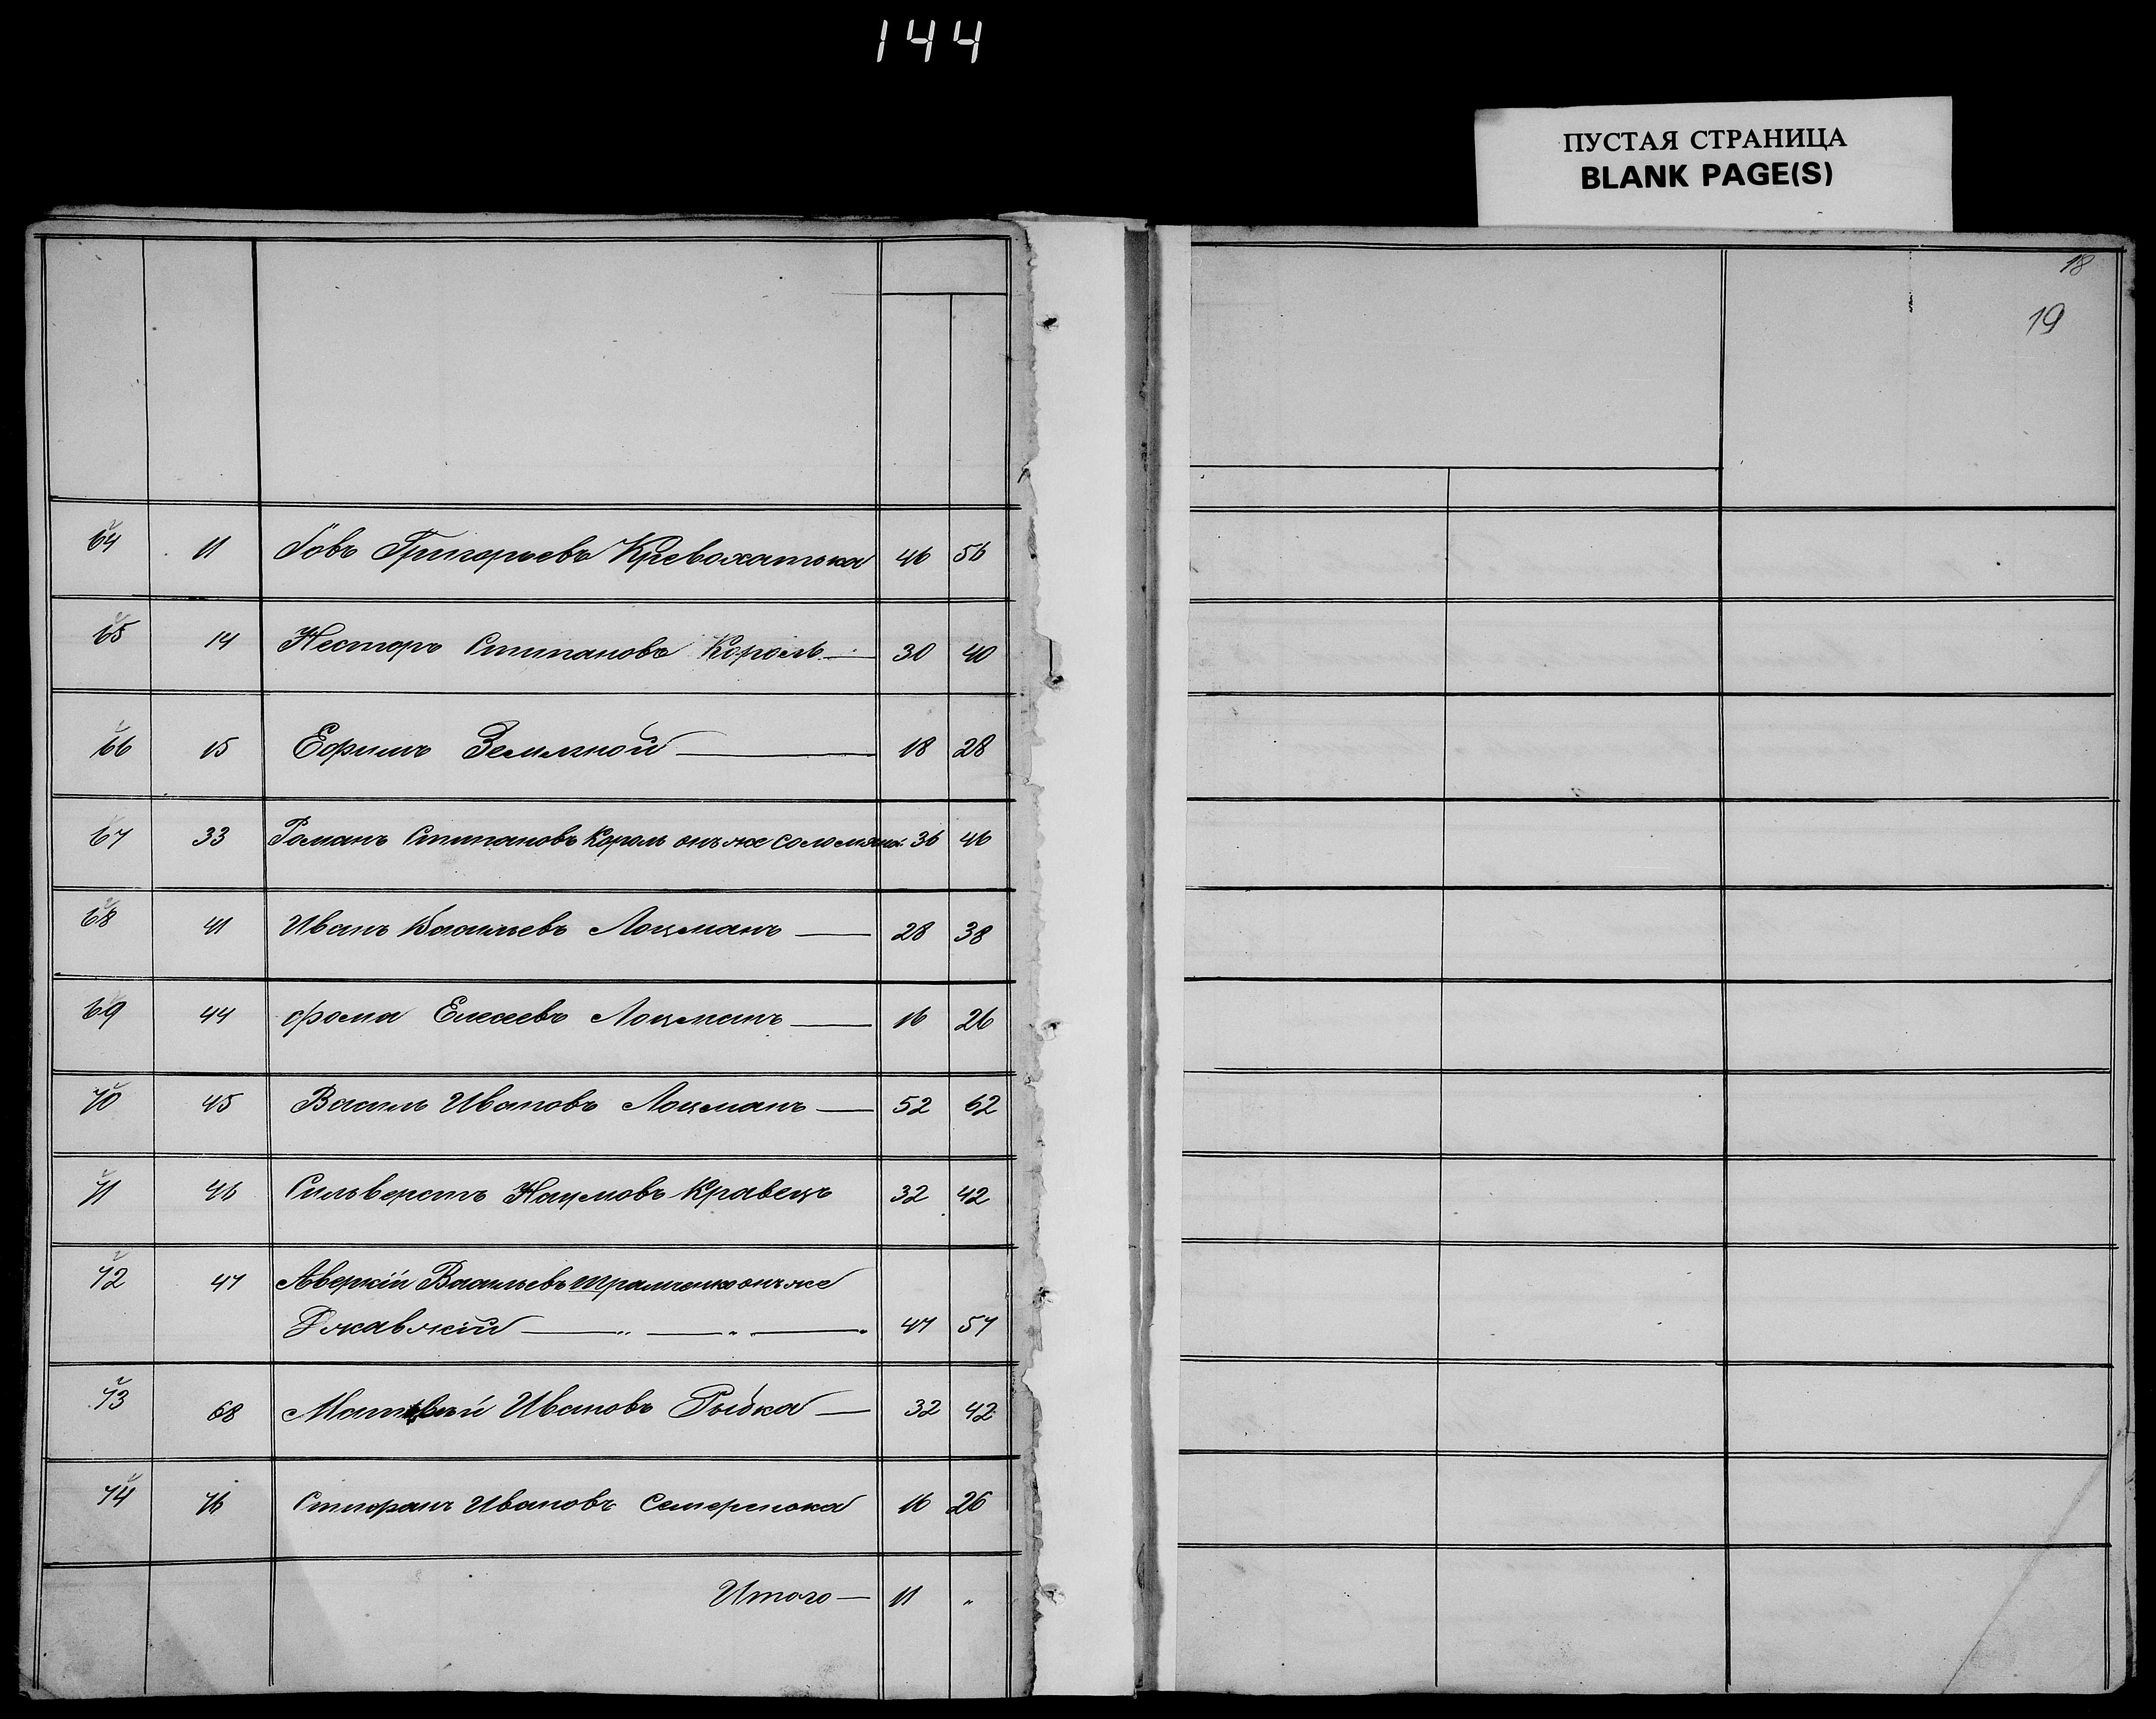 144
ПУСТАЯ СТРАНИЦА
BLANK PAGE(S)
18
19
64 11 Іовъ Григорьевъ Кревохатька 46 56
65 14 Несторъ Степановъ Король 30 40
66 15 Ефимъ Земляной 18 28
67 33 Романъ Степановъ Король онъ же 36 46
68 41 Иванъ Васильевъ Лоцманъ 28 38
69 44 Фома Елесеевъ Лоцманъ 16 26
70 45 Василь Ивановъ Лоцманъ 52 62
71 46 Сильверстъ Наумовъ Кравецъ 32 42
72 47 Аверкій Васильевъ онъ же
47 57
73 68 Матвѣй Ивановъ Рыбка 32 42
74 76 Стефанъ Ивановъ 16 26
Итого — 11 "